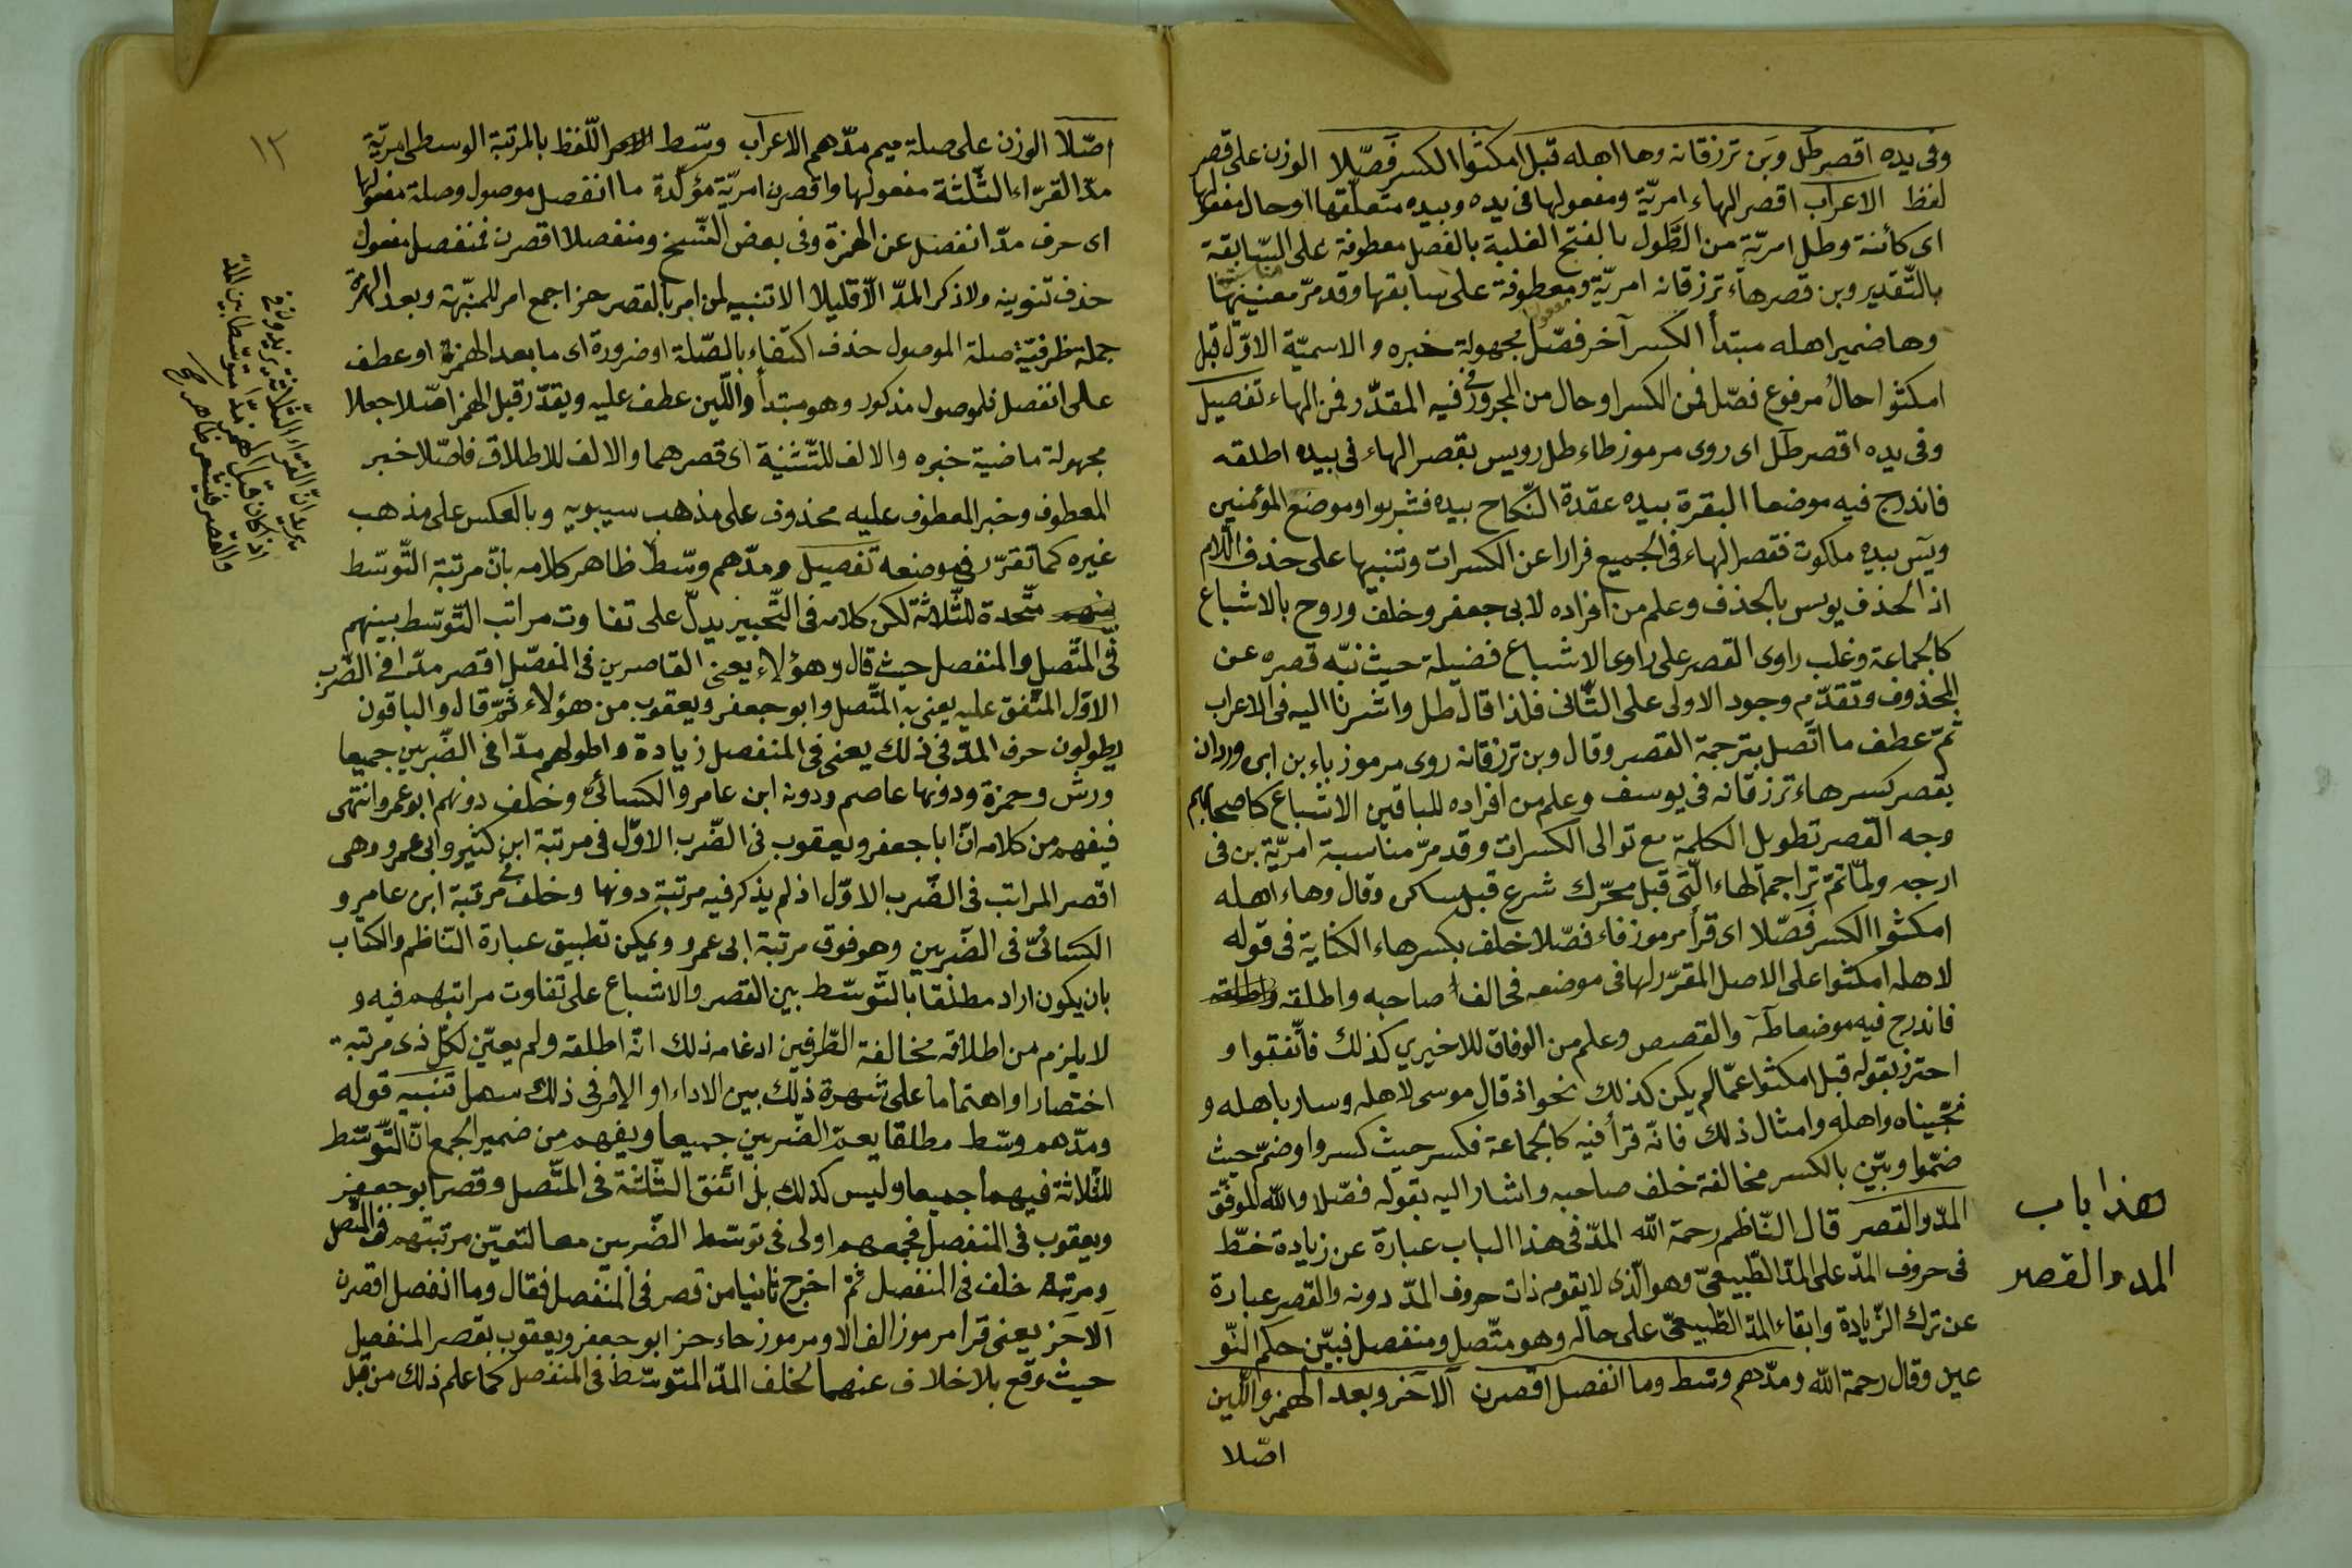 وفى يده اقصر طل وبن ترزقانه وها اهله قبل امكثوا الكسر فصّلا الوزن على قصر
لفظ الاعراب اقصر الهاء امريّة ومفعولها فى يده وبيده متعلّقها او حال مفعولها
اى كائنة وطل امريّة من الطَّول بالفتح الغلبة بالفصل معطوفة على السّابقة
بالتّقدير وبن قصر هاء ترزقانه امريّة ومعطوفة على سابقها وقد مرّ معنييهما
وها ضمير اهله مبتدأ الكسر آخر فصّل مجهولة خبره والاسميّة الاوّل قبل
امكثوا حال مرفوع فصّل فمن الكسر او حال من المجرور فى فيه المقدّر فمن الهاء تفصيل
وفى يده اقصر طل اى روى مرموز طاء طل رويس بقصر الهاء فى بيده اطلقه
فاندرج فيه موضعا البقرة بيده عقدة النّكاح بيده فشربوا وموضع المؤمنين
ويس بيده ملكوت فقصر الهاء فى الجميع فرارا عن الكسرات وتنبيها على حذف اللّام
اذ الحذف يونس بالحذف وعلم من افراده لابى جعفر وخلف وروح بالاشباع
كالجماعة وغلب راوى القصر على راوى الاشباع فضيلة حيث نبّه قصره عن
المحذوف وتقدّم وجود الاولى على الثّانى فلذا قال طل واشرنا اليه فى الاعراب
ثمّ عطف ما اتّصل بترجمة القصر وقال وبن ترزقانه روى مرموز باء بن ابى وردان
بقصر كسر هاء ترزقانه فى يوسف وعلم من افراده للباقين الاشباع كاصحابهم
وجه القصر تطويل الكلمة مع توالى الكسرات وقد مرّ مناسبة امريّة بن فى
ارجه ولمّا تمّ تراجم الهاء الّتى قبل محرّك شرع قبل ساكن وقال وهاء اهله
امكثوا الكسر فصّلا اى قرأ مرموز فاء فصّلا خلف بكسر هاء الكناية فى قوله
لاهله امكثوا على الاصل المقرّر لها فى موضعه فخالف صاحبه واطلقه
فاندرج فيه موضعا طه والقصص وعلم من الوفاق للاخيرى كذلك فاتّفقوا و
احترز بقوله قبل امكثوا عمّا لم يكن كذلك نحو اذ قال موسى لاهله وسار باهله و
نجّيناه واهله وامثال ذلك فانّه قرأ فيه كالجماعة فكسر حيث كسروا وضمّ حيث
ضمّوا وبيّن بالكسر مخالفة خلف صاحبه واشار اليه بقوله فصّلا والله الموفّق
هذا باب
المد والقصر
المدّ والقصر قال النّاظم رحمة الله المدّ فى هذا الباب عبارة عن زيادة خطّ
فى حروف المدّ على المدّ الطّبيعىّ وهو الّذى لا يقوم ذات حروف المدّ دونه والقصر عبارة
عن ترك الزّيادة وابقاء المدّ الطّبيعىّ على حاله وهو متّصل ومنفصل فبيّن حكم النّو
عين وقال رحمة الله ومدّهم وسط وما انفصل اقصرن الا حز وبعد الهمز واللّين
اصّلا
١٢
اصّلا الوزن على صلة ميم مدّهم الاعراب وسّط اللّفظ بالمرتبة الوسطى امريّة
مدّ القرّاء الثّلثة مفعولها واقصرن امريّة مؤكّدة ما انفصل موصول وصلة مفعولها
اى حرف مدّ انفصل عن الهمزة وفى بعض النّسخ ومنفصلا اقصرن فمنفصل مفعول
حذف تنوينه ولا ذكر المدّ الّا قليلا الا تنبيه لمن امر بالقصر حز اجمع امر للمنبّهة وبعد الهمزة
جملة ظرفيّة صلة الموصول حذف اكتفاء بالصّلة او ضرورة اى ما بعد الهمزة او عطف
على انفصل فلموصول مذكور وهو مبتدأ واللّين عطف عليه ويقدّر قبل الهمز اصّلا جعلا
مجهولة ماضية خبره والالف للتّثنية اى قصرهما والالف للاطلاق فاصّلا خبر
المعطوف وخبر المعطوف عليه محذوف على مذهب سيبويه وبالعكس على مذهب
غيره كما تقرّر فى موضعه تفصيل ومدّهم وسّط ظاهر كلامه بانّ مرتبة التّوسّط
متّحدة للثّلاثة لكن كلامه فى التّحبير يدلّ على تفاوت مراتب التّوسّط بينهم
فى المتّصل والمنفصل حيث قال وهؤلاء يعنى القاصرين فى المنفصل اقصر مدّا فى الضّرب
الاوّل المتّفق عليه يعنى به المتّصل وابو جعفر ويعقوب من هؤلاء ثمّ قال والباقون
يطولون حرف المدّ فى ذلك يعنى فى المنفصل زيادة واطولهم مدّا فى الضّربين جميعا
ورش وحمزة ودونها عاصم ودونه ابن عامر والكسائىّ وخلف دونهم ابو عمرو انتهى
فيفهم من كلامه انّ ابا جعفر ويعقوب فى الضّرب الاوّل فى مرتبة ابن كثير وابى عمرو وهى
اقصر المراتب فى الضّرب الاوّل اذ لم يذكر فيه مرتبة دونها وخلف فى مرتبة ابن عامر و
الكسائىّ فى الضّربين وهو فوق مرتبة ابى عمرو ويمكن تطبيق عبارة النّاظم والكتاب
بان يكون اراد مطلقا بالتّوسّط بين القصر والاشباع على تفاوت مراتبهم فيه و
لا يلزم من اطلاقه مخالفة الطّرفين ادغامه ذلك انّه اطلقه ولم يعيّن لكلّ ذى مرتبة
اختصارا واهتماما على شهرة ذلك بين الاداء او الامر فى ذلك سهل تنبيه قوله
ومدّهم وسّط مطلقا يعمّ الضّربين جميعا ويفهم من ضمير الجمع انّ التّوسّط
للثّلاثة فيهما جميعا وليس كذلك بل اتّفق الثّلثة فى المتّصل وقصر ابو جعفر
ويعقوب فى المنفصل فجمعهم اولى فى توسّط الضّربين معا لتعيّن مرتبتهم فى المتّصل
ومرتبة خلف فى المنفصل ثمّ اخرج ثانيا من قصر فى المنفصل فقال وما انفصل اقصرن
الا حز يعنى قرأ مرموز الف الا ومرموز حاء حز ابو جعفر ويعقوب بقصر المنفصل
حيث وقع بلا خلاف عنهما لخلف المدّ المتوسّط فى المنفصل كما علم ذلك من قبل
يريد انّ القرّاء الثّلاثة يزيدون فى
اذا كان قبل الهمز مدّا متوسّطا بين المدّ
والقصر